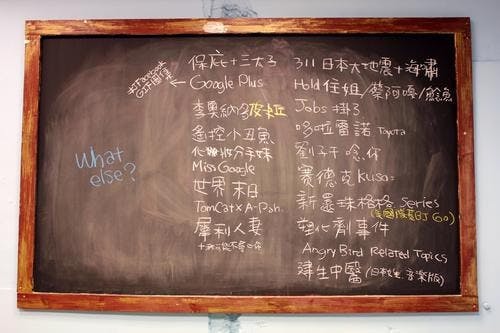 打Facebook
GIF圖傳
←
What
else?
保庇+三太子
Google Plus
李奧納多皮卡丘
遙控小丑魚
化妝分手妹
Miss Google
世界末日
TomCat×A-Pan
犀利人妻
311 日本大地震+海嘯
Hold住姐/蔡阿嘎/鯰魚
Jobs 掛了
哆啦雷諾 Toyota
劉子千 唸你
賽德克Kuso
新還珠格格 Series
塑化劑事件
Angry Bird Related Topics
建生中醫(日本女生、音樂版)